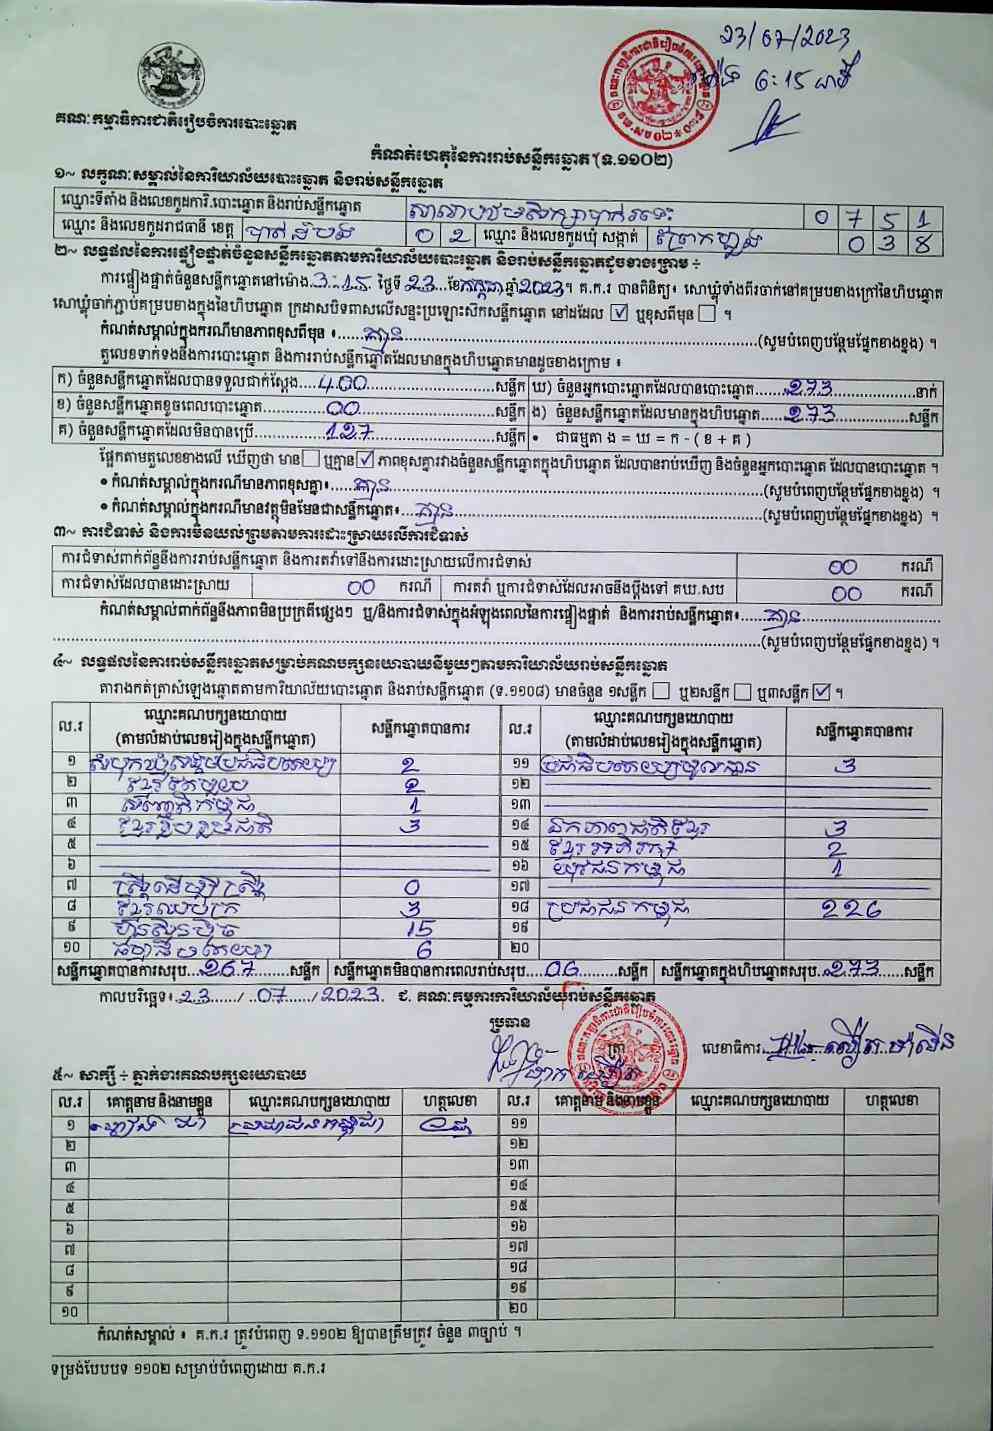 23/07/2023
ម៉ោង ៦:15 នាទី
គណៈកម្មាធិការជាតិរៀបចំការបោះឆ្នោត
កំណត់ហេតុនៃការរាប់សន្លឹកឆ្នោត (ទ.១១០២)
១~ លក្ខណៈសម្គាល់នៃការិយាល័យបោះឆ្នោត និងរាប់សន្លឹកឆ្នោត
ឈ្មោះទីតាំង និងលេខកូដការិ.បោះឆ្នោត និងរាប់សន្លឹកឆ្នោត 0 7 5 1
ឈ្មោះ និងលេខកូដរាជធានី ខេត្ត បាត់ដំបង 0 2 ឈ្មោះ និងលេខកូដឃុំ សង្កាត់ 0 3 8
២~ លទ្ធផលនៃការផ្ទៀងផ្ទាត់ចំនួនសន្លឹកឆ្នោតតាមការិយាល័យបោះឆ្នោត និងរាប់សន្លឹកឆ្នោតដូចខាងក្រោម ÷
ការផ្ទៀងផ្ទាត់ចំនួនសន្លឹកឆ្នោតនៅម៉ោង 3:15 ថ្ងៃទី 23 ខែ កក្កដា ឆ្នាំ 2023 ។ គ.ក.រ បានពិនិត្យ៖ សោឃ្លុំទាំងពីរចាក់នៅគម្របខាងក្រៅនៃហិបឆ្នោត
សោឃ្លុំចាក់ភ្ជាប់គម្របខាងក្នុងនៃហិបឆ្នោត ក្រដាសបិទពាសលើសន្ទះប្រឡោះសិកសន្លឹកឆ្នោត នៅដដែល ☑ ឬខុសពីមុន ☐ ។
កំណត់សម្គាល់ក្នុងករណីមានភាពខុសពីមុន ៖ គ្មាន (សូមបំពេញបន្ថែមផ្នែកខាងខ្នង) ។
តួលេខទាក់ទងនឹងការបោះឆ្នោត និងការរាប់សន្លឹកឆ្នោតដែលមានក្នុងហិបឆ្នោតមានដូចខាងក្រោម ៖
ក) ចំនួនសន្លឹកឆ្នោតដែលបានទទួលជាក់ស្ដែង 400 សន្លឹក ឃ) ចំនួនអ្នកបោះឆ្នោតដែលបានបោះឆ្នោត 273 នាក់
ខ) ចំនួនសន្លឹកឆ្នោតខូចពេលបោះឆ្នោត 00 សន្លឹក ង) ចំនួនសន្លឹកឆ្នោតដែលមានក្នុងហិបឆ្នោត 273 សន្លឹក
គ) ចំនួនសន្លឹកឆ្នោតដែលមិនបានប្រើ 127 សន្លឹក • ជាធម្មតា ង = ឃ = ក - ( ខ + គ )
ផ្អែកតាមតួលេខខាងលើ ឃើញថា មាន ☐ ឬគ្មាន ☑ ភាពខុសគ្នារវាងចំនួនសន្លឹកឆ្នោតក្នុងហិបឆ្នោត ដែលបានរាប់ឃើញ និងចំនួនអ្នកបោះឆ្នោត ដែលបានបោះឆ្នោត ។
• កំណត់សម្គាល់ក្នុងករណីមានភាពខុសគ្នា៖ គ្មាន (សូមបំពេញបន្ថែមផ្នែកខាងខ្នង) ។
• កំណត់សម្គាល់ក្នុងករណីមានវត្ថុមិនមែនជាសន្លឹកឆ្នោត៖ គ្មាន (សូមបំពេញបន្ថែមផ្នែកខាងខ្នង) ។
៣~ ការជំទាស់ និងការមិនយល់ព្រមតាមការដោះស្រាយលើការជំទាស់
ការជំទាស់ពាក់ព័ន្ធនឹងការរាប់សន្លឹកឆ្នោត និងការតវ៉ាទៅនឹងការដោះស្រាយលើការជំទាស់ 00 ករណី
ការជំទាស់ដែលបានដោះស្រាយ 00 ករណី ការតវ៉ា ឬការជំទាស់ដែលអាចនឹងប្ដឹងទៅ គឃ.សប 00 ករណី
កំណត់សម្គាល់ពាក់ព័ន្ធនឹងភាពមិនប្រក្រតីផ្សេងៗ ឬ/និងការជំទាស់ក្នុងអំឡុងពេលនៃការផ្ទៀងផ្ទាត់ និងការរាប់សន្លឹកឆ្នោត៖ គ្មាន
(សូមបំពេញបន្ថែមផ្នែកខាងខ្នង) ។
៤~ លទ្ធផលនៃការរាប់សន្លឹកឆ្នោតសម្រាប់គណបក្សនយោបាយនីមួយៗតាមការិយាល័យរាប់សន្លឹកឆ្នោត
តារាងកត់ត្រាសំឡេងឆ្នោតតាមការិយាល័យបោះឆ្នោត និងរាប់សន្លឹកឆ្នោត (ទ.១១០៨) មានចំនួន ១សន្លឹក ☐ ឬ២សន្លឹក ☐ ឬ៣សន្លឹក ☑ ។
ល.រ ឈ្មោះគណបក្សនយោបាយ (តាមលំដាប់លេខរៀងក្នុងសន្លឹកឆ្នោត) សន្លឹកឆ្នោតបានការ ល.រ ឈ្មោះគណបក្សនយោបាយ (តាមលំដាប់លេខរៀងក្នុងសន្លឹកឆ្នោត) សន្លឹកឆ្នោតបានការ
១ សំបុកឃ្មុំសង្គមប្រជាធិបតេយ្យ 2 ១១ ប្រជាធិបតេយ្យមូលដ្ឋាន 3
២ ខ្មែរតែមួយ 2 ១២
៣ សញ្ជាតិកម្ពុជា 1 ១៣
៤ ខ្មែររួបរួមជាតិ 3 ១៤ ឯកភាពជាតិខ្មែរ 3
៥ ១៥ ខ្មែរអភិរក្ស 2
៦ ១៦ យុវជនកម្ពុជា 1
៧ ស្ត្រីដើម្បីស្ត្រី 0 ១៧
៨ ខ្មែរឈប់ក្រ 3 ១៨ ប្រជាជនកម្ពុជា 226
៩ ហ៊្វុនស៊ិនប៉ិច 15 ១៩
១០ ធម្មាធិបតេយ្យ 6 ២០
សន្លឹកឆ្នោតបានការសរុប 267 សន្លឹក សន្លឹកឆ្នោតមិនបានការពេលរាប់សរុប 06 សន្លឹក សន្លឹកឆ្នោតក្នុងហិបឆ្នោតសរុប 273 សន្លឹក
កាលបរិច្ឆេទ៖ 23 / 07 / 2023 ជ. គណៈកម្មការការិយាល័យរាប់សន្លឹកឆ្នោត
ប្រធាន ត្រា លេខាធិការ
៥~ សាក្សី ÷ ភ្នាក់ងារគណបក្សនយោបាយ
ល.រ គោត្តនាម និងនាមខ្លួន ឈ្មោះគណបក្សនយោបាយ ហត្ថលេខា ល.រ គោត្តនាម និងនាមខ្លួន ឈ្មោះគណបក្សនយោបាយ ហត្ថលេខា
១ ប្រជាជនកម្ពុជា ១១
២ ១២
៣ ១៣
៤ ១៤
៥ ១៥
៦ ១៦
៧ ១៧
៨ ១៨
៩ ១៩
១០ ២០
កំណត់សម្គាល់ ៖ គ.ក.រ ត្រូវបំពេញ ទ.១១០២ ឱ្យបានត្រឹមត្រូវ ចំនួន ៣ច្បាប់ ។
ទម្រង់បែបបទ ១១០២ សម្រាប់បំពេញដោយ គ.ក.រ